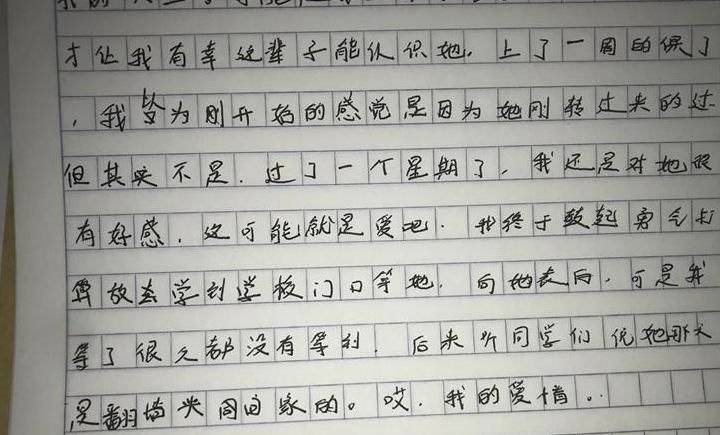 才让我有幸这辈子能认识她.上了一周的课了
,我以为刚开始的感觉是因为她刚转过来的过
但其实不是.过了一个星期了,我还是对她很
有好感,这可能就是爱吧.我终于鼓起勇气打
算放去学到学校门口等她.向她表白.可是我
等了很久都没有等到.后来听同学们说她那天
是翻墙头回的家的。哎.我的爱情。.